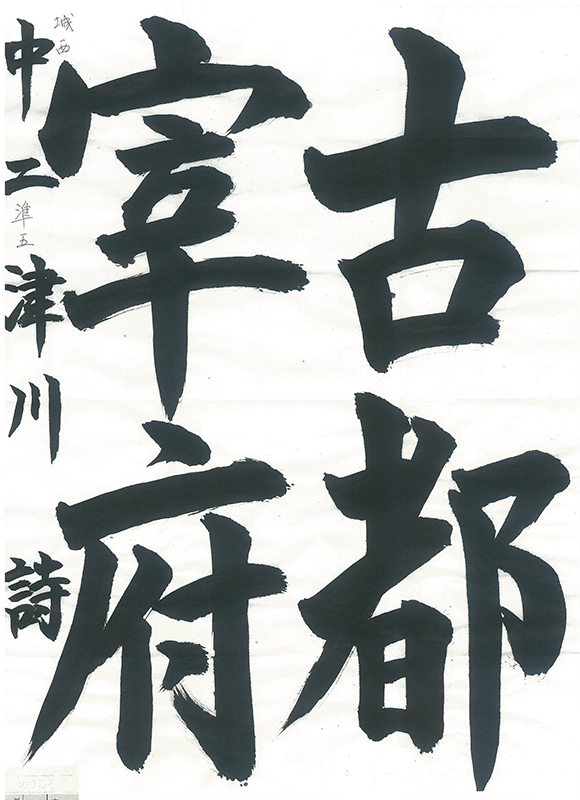 古都
宰府
中二 津川 詩
城西
準五